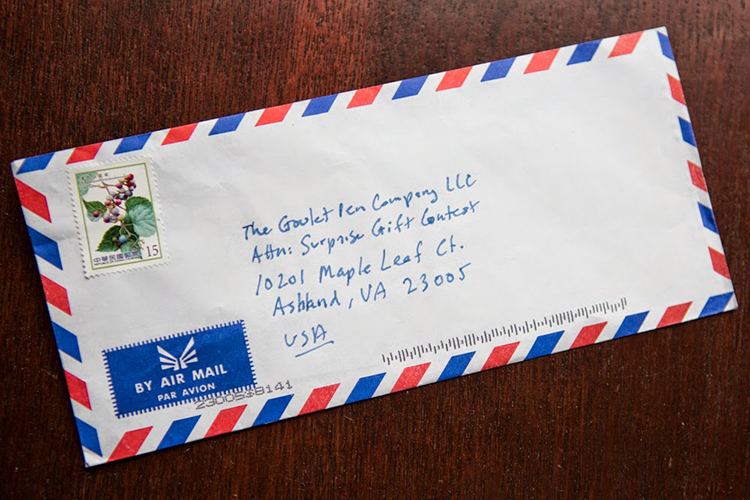 中華民國郵票
15
The Goulet Pen Company LLC
Attn: Surprise Gift Contest
10201 Maple Leaf Ct.
Ashland, VA 23005
USA
BY AIR MAIL
PAR AVION
23005$8141